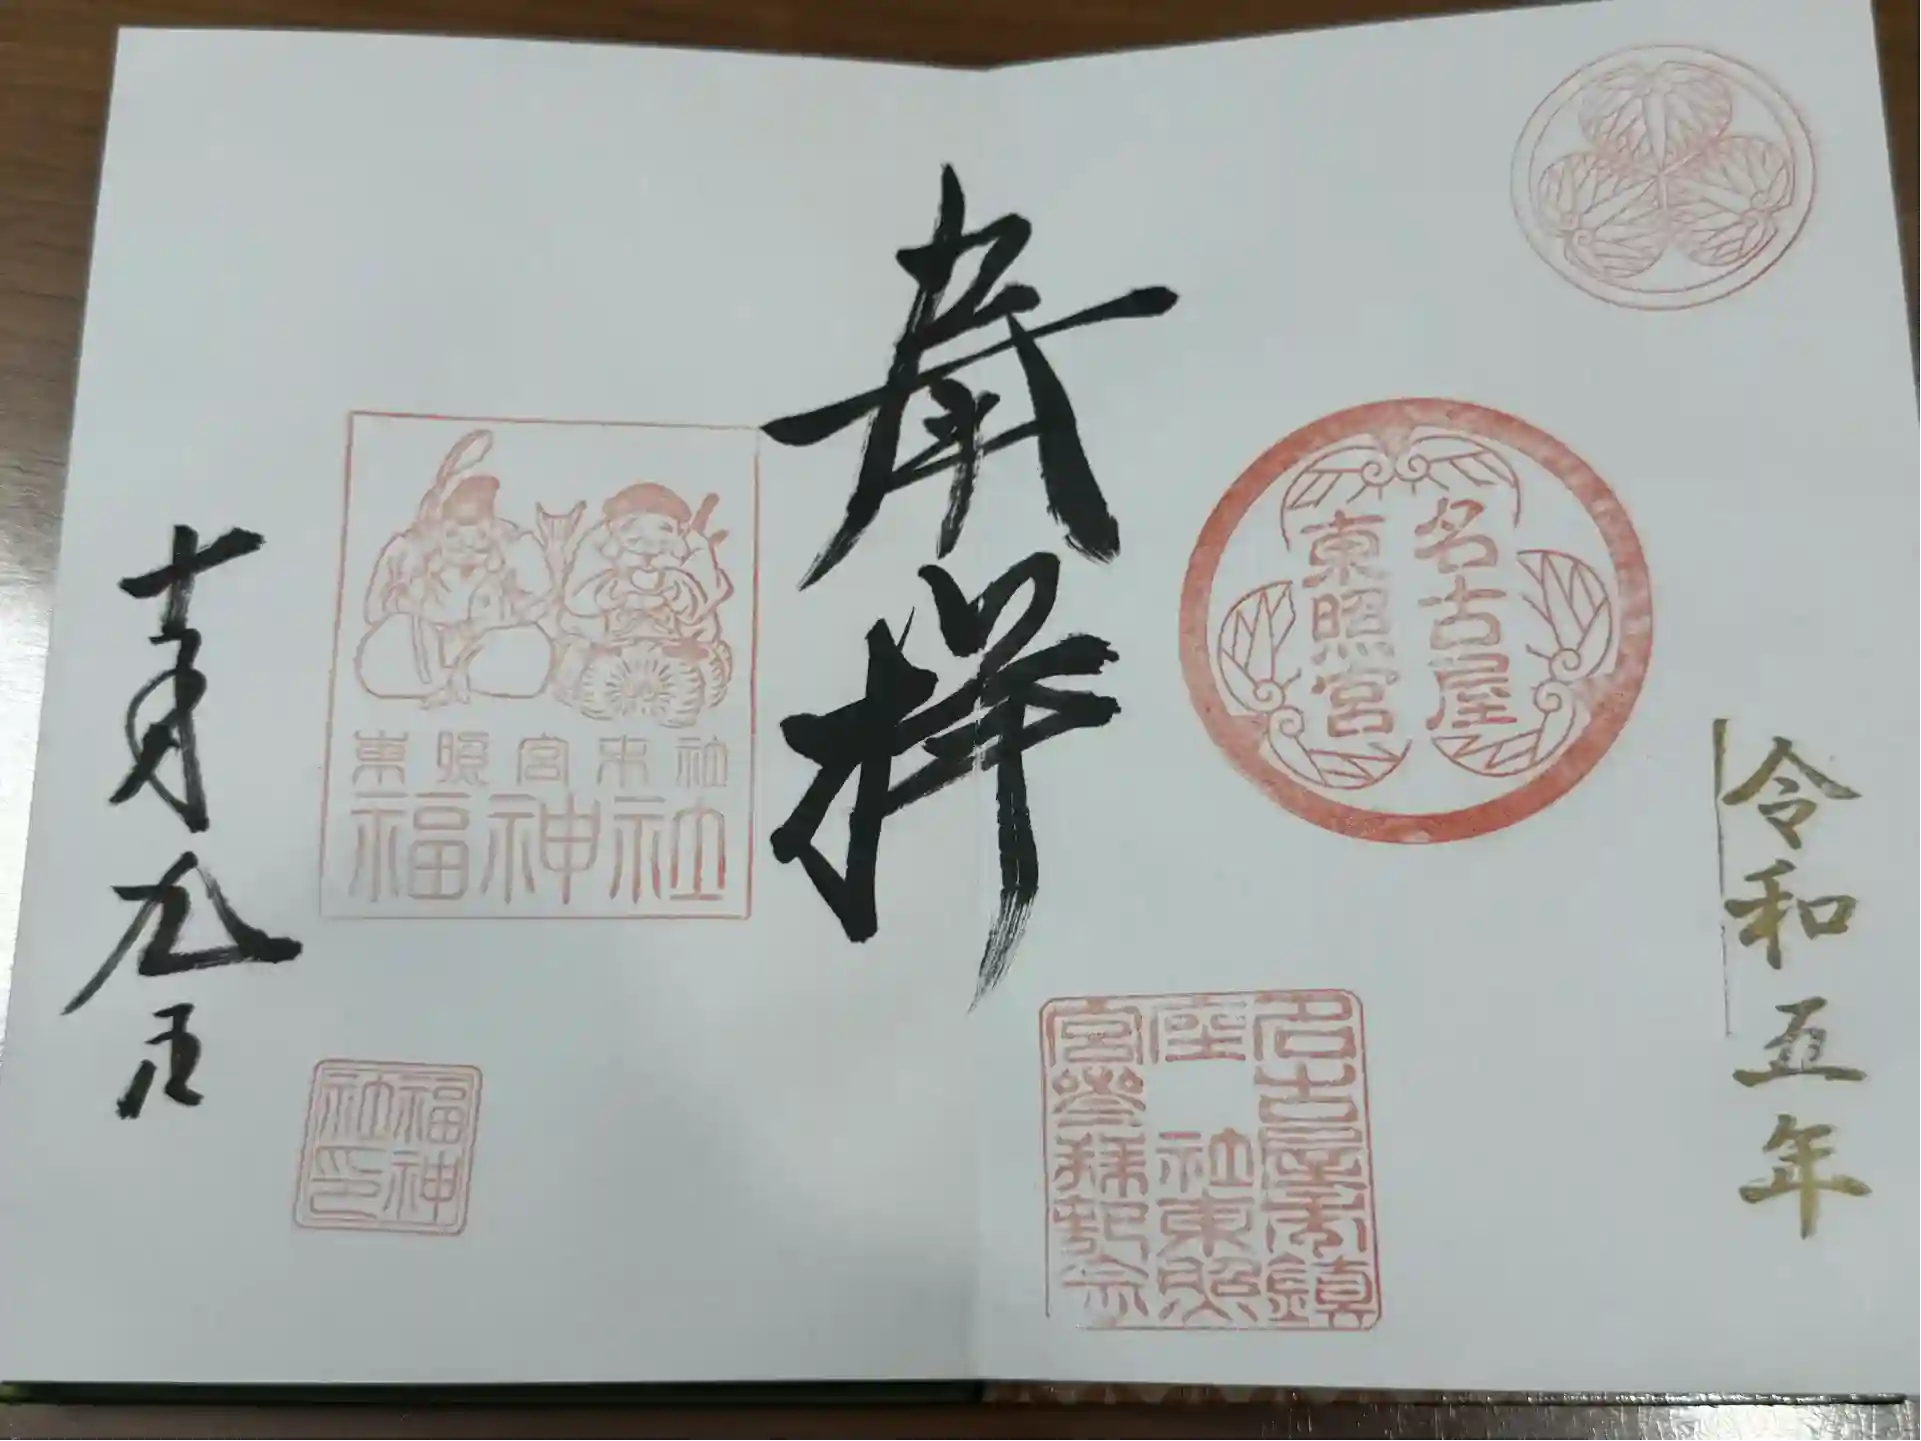 令和五年
名古屋
東照宮
名古屋市鎮
座社東照
宮参拝記念
奉拝
東照宮末社
福神社
福神
社印
十二月九日